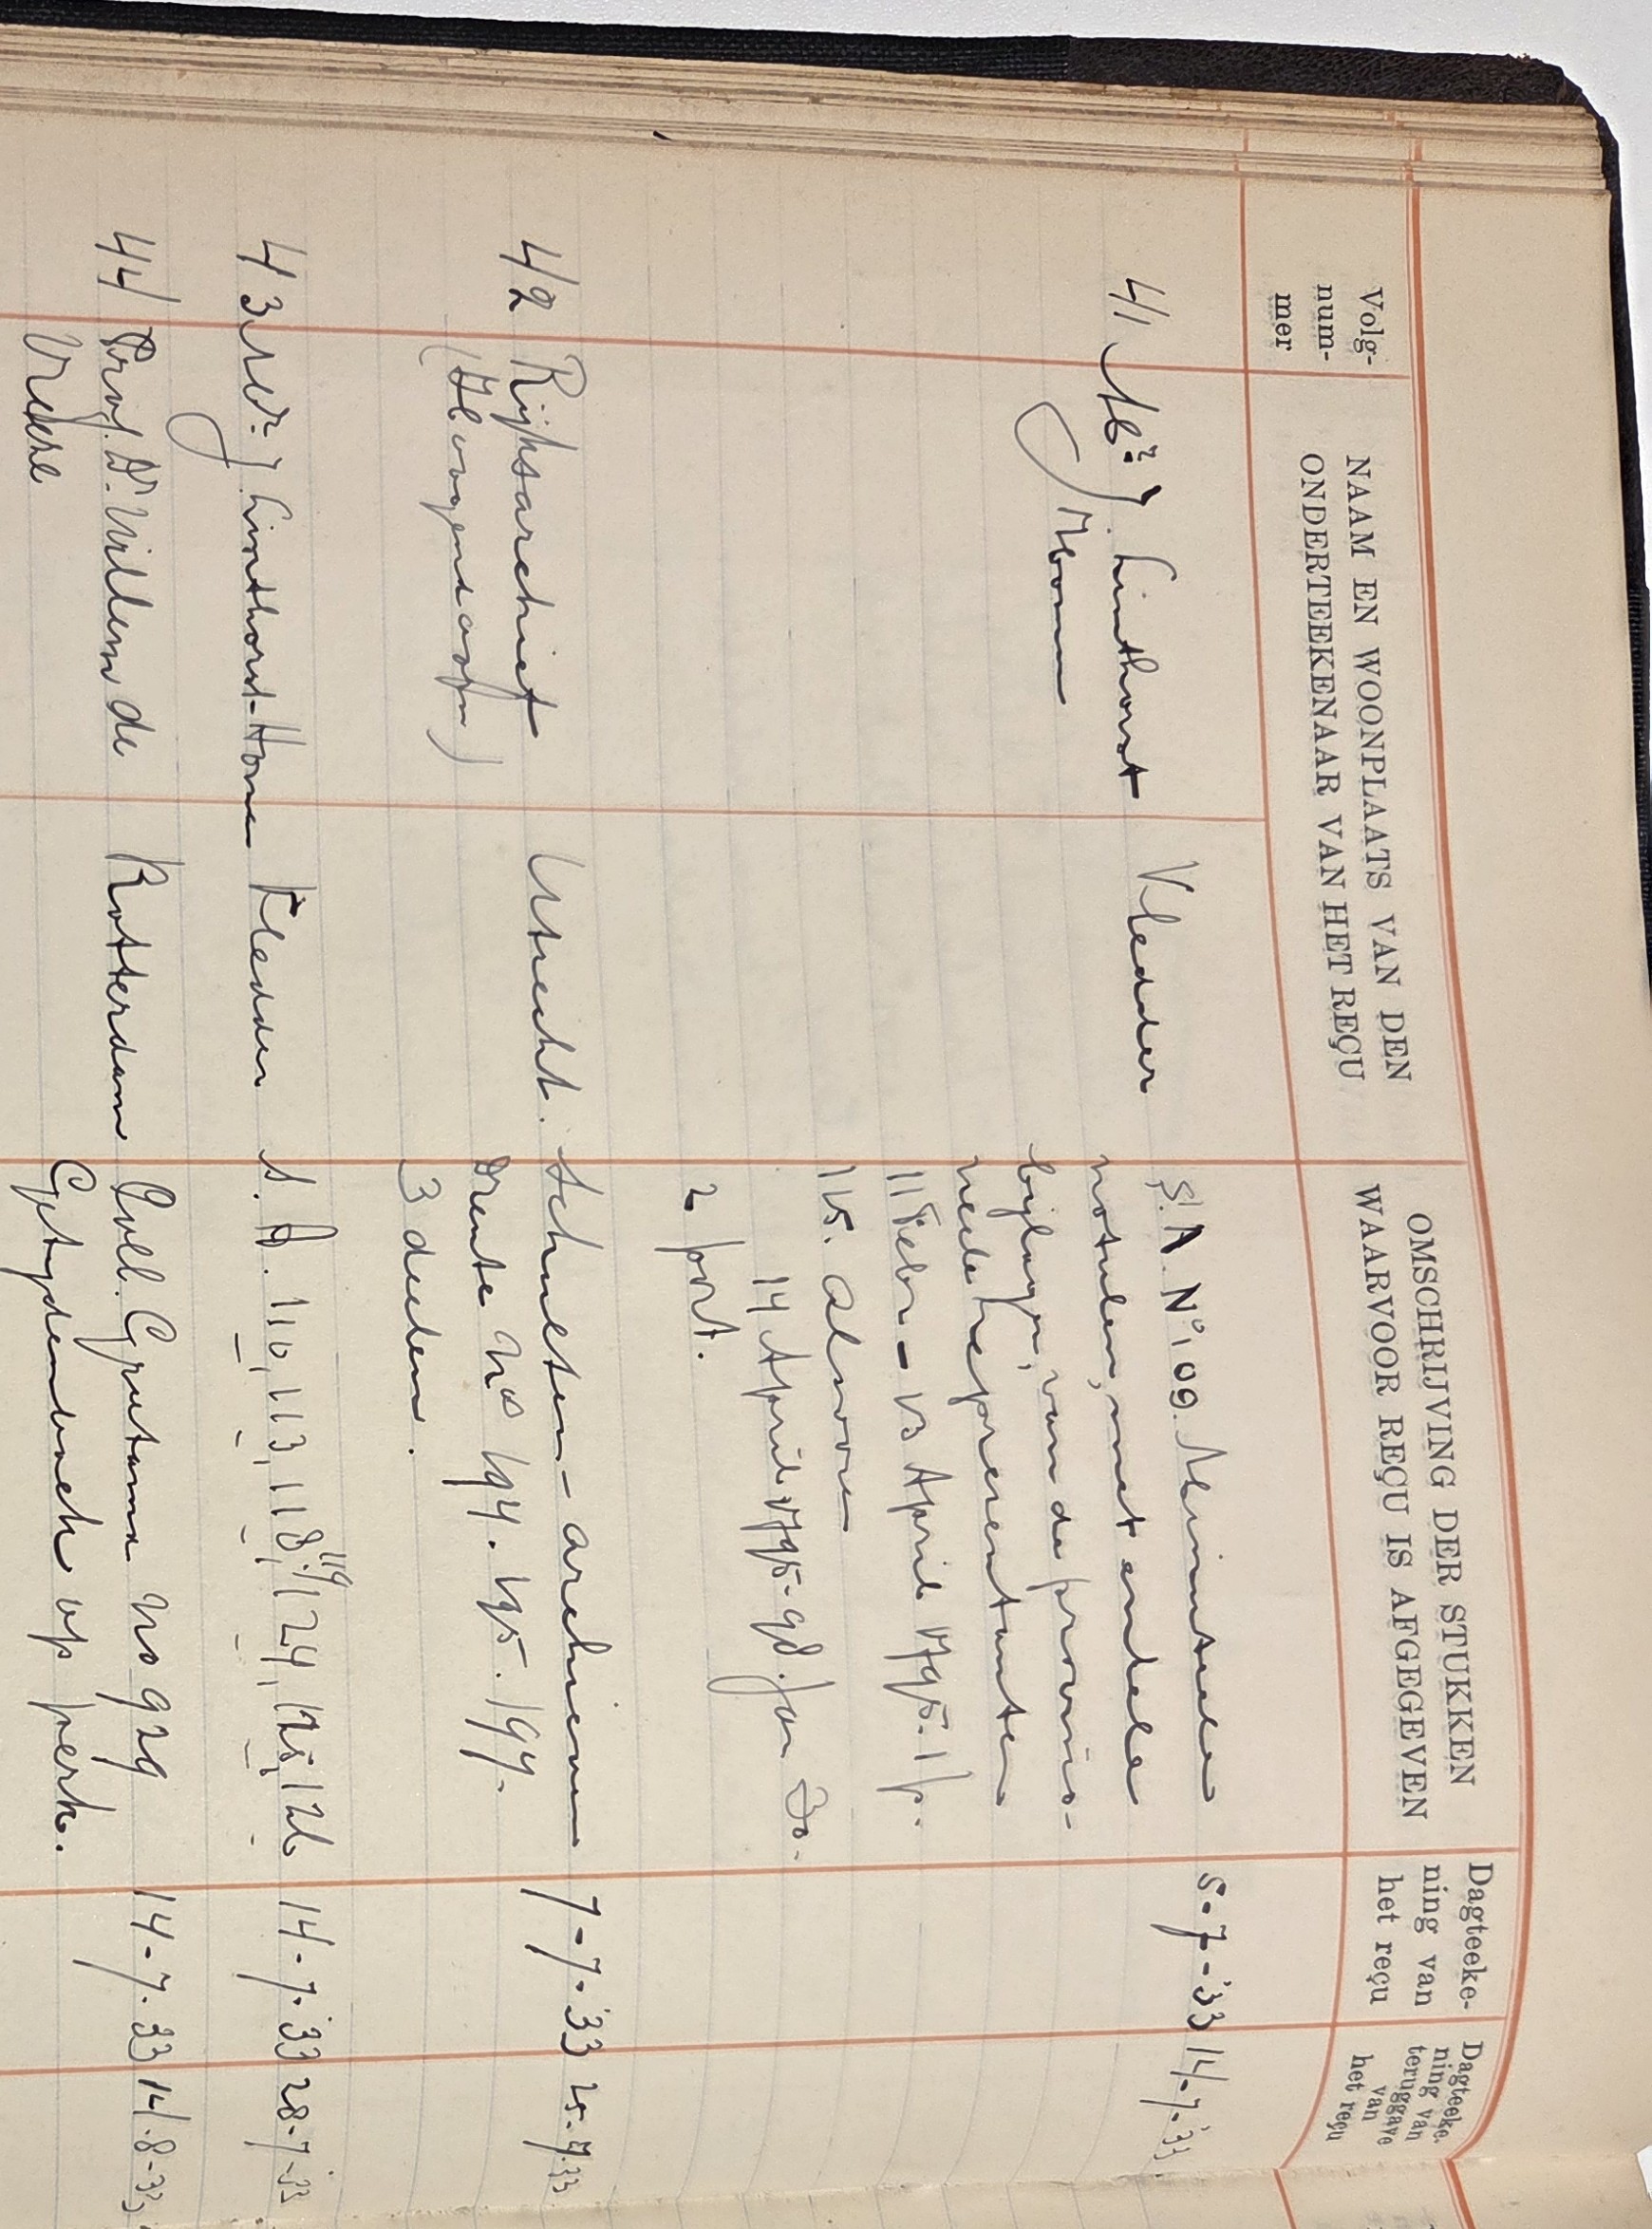 Volg-
num-
mer
NAAM EN WOONPLAATS VAN DEN
ONDERTEEKENAAR VAN HET REÇU
OMSCHRIJVING DER STUKKEN
WAARVOOR REÇU IS AFGEGEVEN
Dagteeke-
ning van
het reçu
Dagteeke-
ning van
teruggave
van
het reçu
41 Mr. J. Linthorst Vledder S.A. No 109. Minuteele 5-7-'33 14-7-'33.
Homan notulen, met enkele
bijlagen, van de provisio-
neele representanten
11 Febr - 13 April 1795. 1 p.
115. Alvoren
14 April 1795-98. Jan
2 port.
42 Rijksarchief Utrecht. Schulten-archieven 7-7-'33 25-7-'33
(Hoogendoorn) Drente No 194. 195. 197.
3 deelen.
43 Mr. J. Linthorst-Homan Vledder S.A. 110, 113, 118, 119, 124, 125, 126 14-7-'33 28-7-'33
44 Prof. Dr. Willem de Rotterdam Coll. Gratama No 929 14-7-33 14-8-33
Vreese Getydenboek op perk.